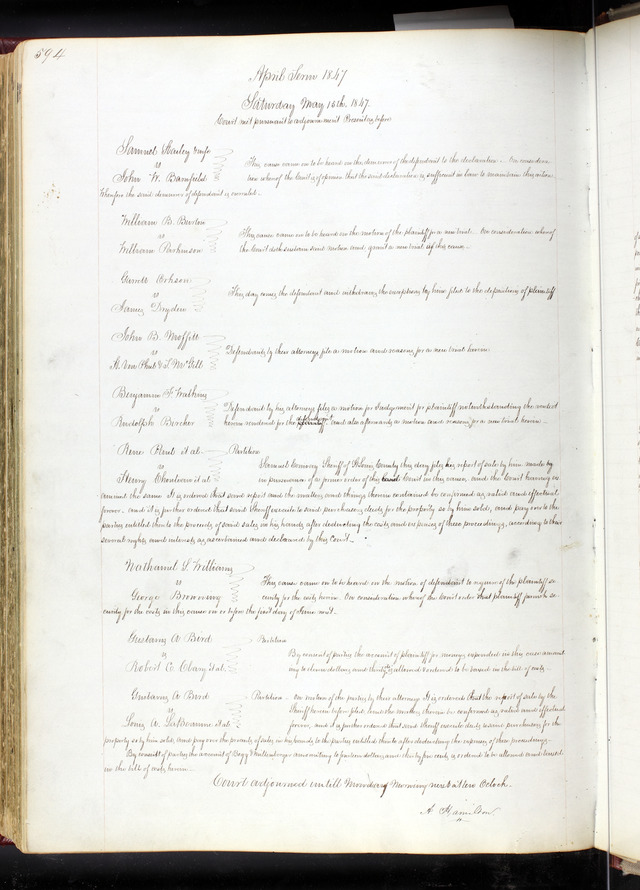 594
April Term 1847
Saturday May 15th 1847.
Court met pursuant to adjournment Present as before
Samuel Stanley & wife
vs
John W. Barnfield
This cause came on to be heard on the demurrer of the defendant to the declaration. On consideration
whereof the Court is of opinion that the said declaration is sufficient in law to maintain this action
Wherefore the said demurrer of defendant is overruled.
William B. Burton
vs
William Parkinson
This cause came on to be heard on the motion of the plaintiff for a new trial. On consideration whereof
the Court doth sustain said motion and grant a new trial of this cause.
Garrett
vs
James Dryden
This day came the defendant and withdraws the exceptions by him filed to the deposition of plaintiff
John B. Moffitt
vs
Defendants by their attorneys file a motion and reasons for a new trial herein
Benjamin F. Watkins
vs
Rudolph Bircher
Defendant by his attorney files a motion for Judgement for plaintiff notwithstanding the verdict
herein rendered for the defendant and also afterwards a motion and reasons for a new trial herein.
Rene Paul et al.
vs
Henry Chouteau et al
Partition
Samuel Conway Sheriff of St Louis County this day files his report of sale by him made by
in pursuance of a former order of this Court in this cause, and the Court having examined
the same It is ordered that said report and the matters and things therein contained be confirmed as valid and effectual
forever. and it is further ordered that said Sheriff execute to said purchasers deeds for the property so by him sold, and pay over to the
parties entitled thereto the proceeds of said sales in his hands, after deducting the costs and expenses of these proceedings, according to their
several rights and interests as ascertained and declared by this Court.
Nathaniel L. Williams
vs
George Browning
This cause came on to be heard on the motion of defendant to require of the plaintiff
security for the costs herein. On consideration whereof the Court order that plaintiff furnish
security for the costs in this cause on or before the first day of Term next.
Gustavus A. Bird
vs
Robert C. et al.
Partition
By consent of parties the account of plaintiff for moneys expended in this case
amounting to dollars and thirty cts allowed & ordered to be taxed in the bill of costs.
Gustavus A. Bird
vs
Louis A. LaBeaume et al.
Partition. On motion of the parties by their attorneys It is ordered that the report of sale by the
Sheriff herein before filed, and the matters therein be confirmed as valid and effectual
forever, and it is further ordered that said Sheriff execute deeds to said purchasers for the
property so by him sold, and pay over the proceeds of sales in his hands to the parties entitled thereto after deducting the expenses of these proceedings.
By consent of parties the account of amounting to fourteen dollars and thirty five cents is ordered to be allowed and taxed
in the bill of costs herein.
Court adjourned untill Monday Morning next at ten Oclock.
A Hamilton